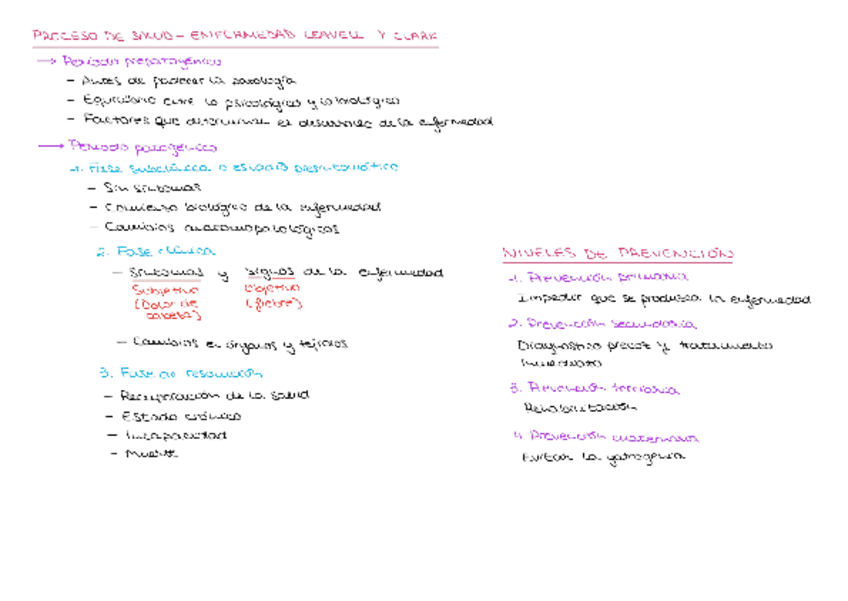 PROCESO DE SALUD - ENFERMEDAD LEAVELL Y CLARK
→ Período prepatogénico
- Antes de padecer la patología
- Equilibrio entre lo psicológico y lo biológico
- Factores que determinan el desarrollo de la enfermedad
→ Período patogénico
1. Fase subclínica o estadío presintomático
- Sin síntomas
- Comienzo biológico de la enfermedad
- Cambios anatomopatológicos
2. Fase clínica
- Síntomas y signos de la enfermedad
Subjetivo Objetivo
(Dolor de (fiebre)
cabeza)
- Cambios en órganos y tejidos
3. Fase de resolución
- Recuperación de la salud
- Estado crónico
- Incapacidad
- Muerte
NIVELES DE PREVENCIÓN
1. Prevención primaria
Impedir que se produzca la enfermedad
2. Prevención secundaria
Diagnóstico precoz y tratamiento
inmediato
3. Prevención terciaria
Rehabilitación
4. Prevención cuaternaria
Evitar la yatrogenia